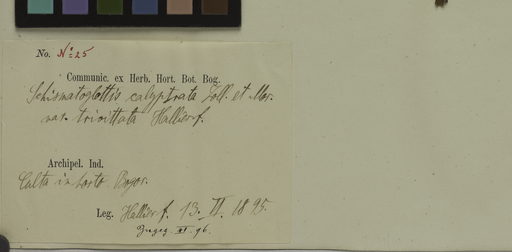 No. No 25
Communic. ex Herb. Hort. Bot. Bog.
Schismatoglottis calyptrata Zoll. et Mor.
var. trivittata Hallier f.
Archipel. Ind.
Culta in horto Bogor.
Leg. Hallier f. 13. II. 1895.
XI. 96.